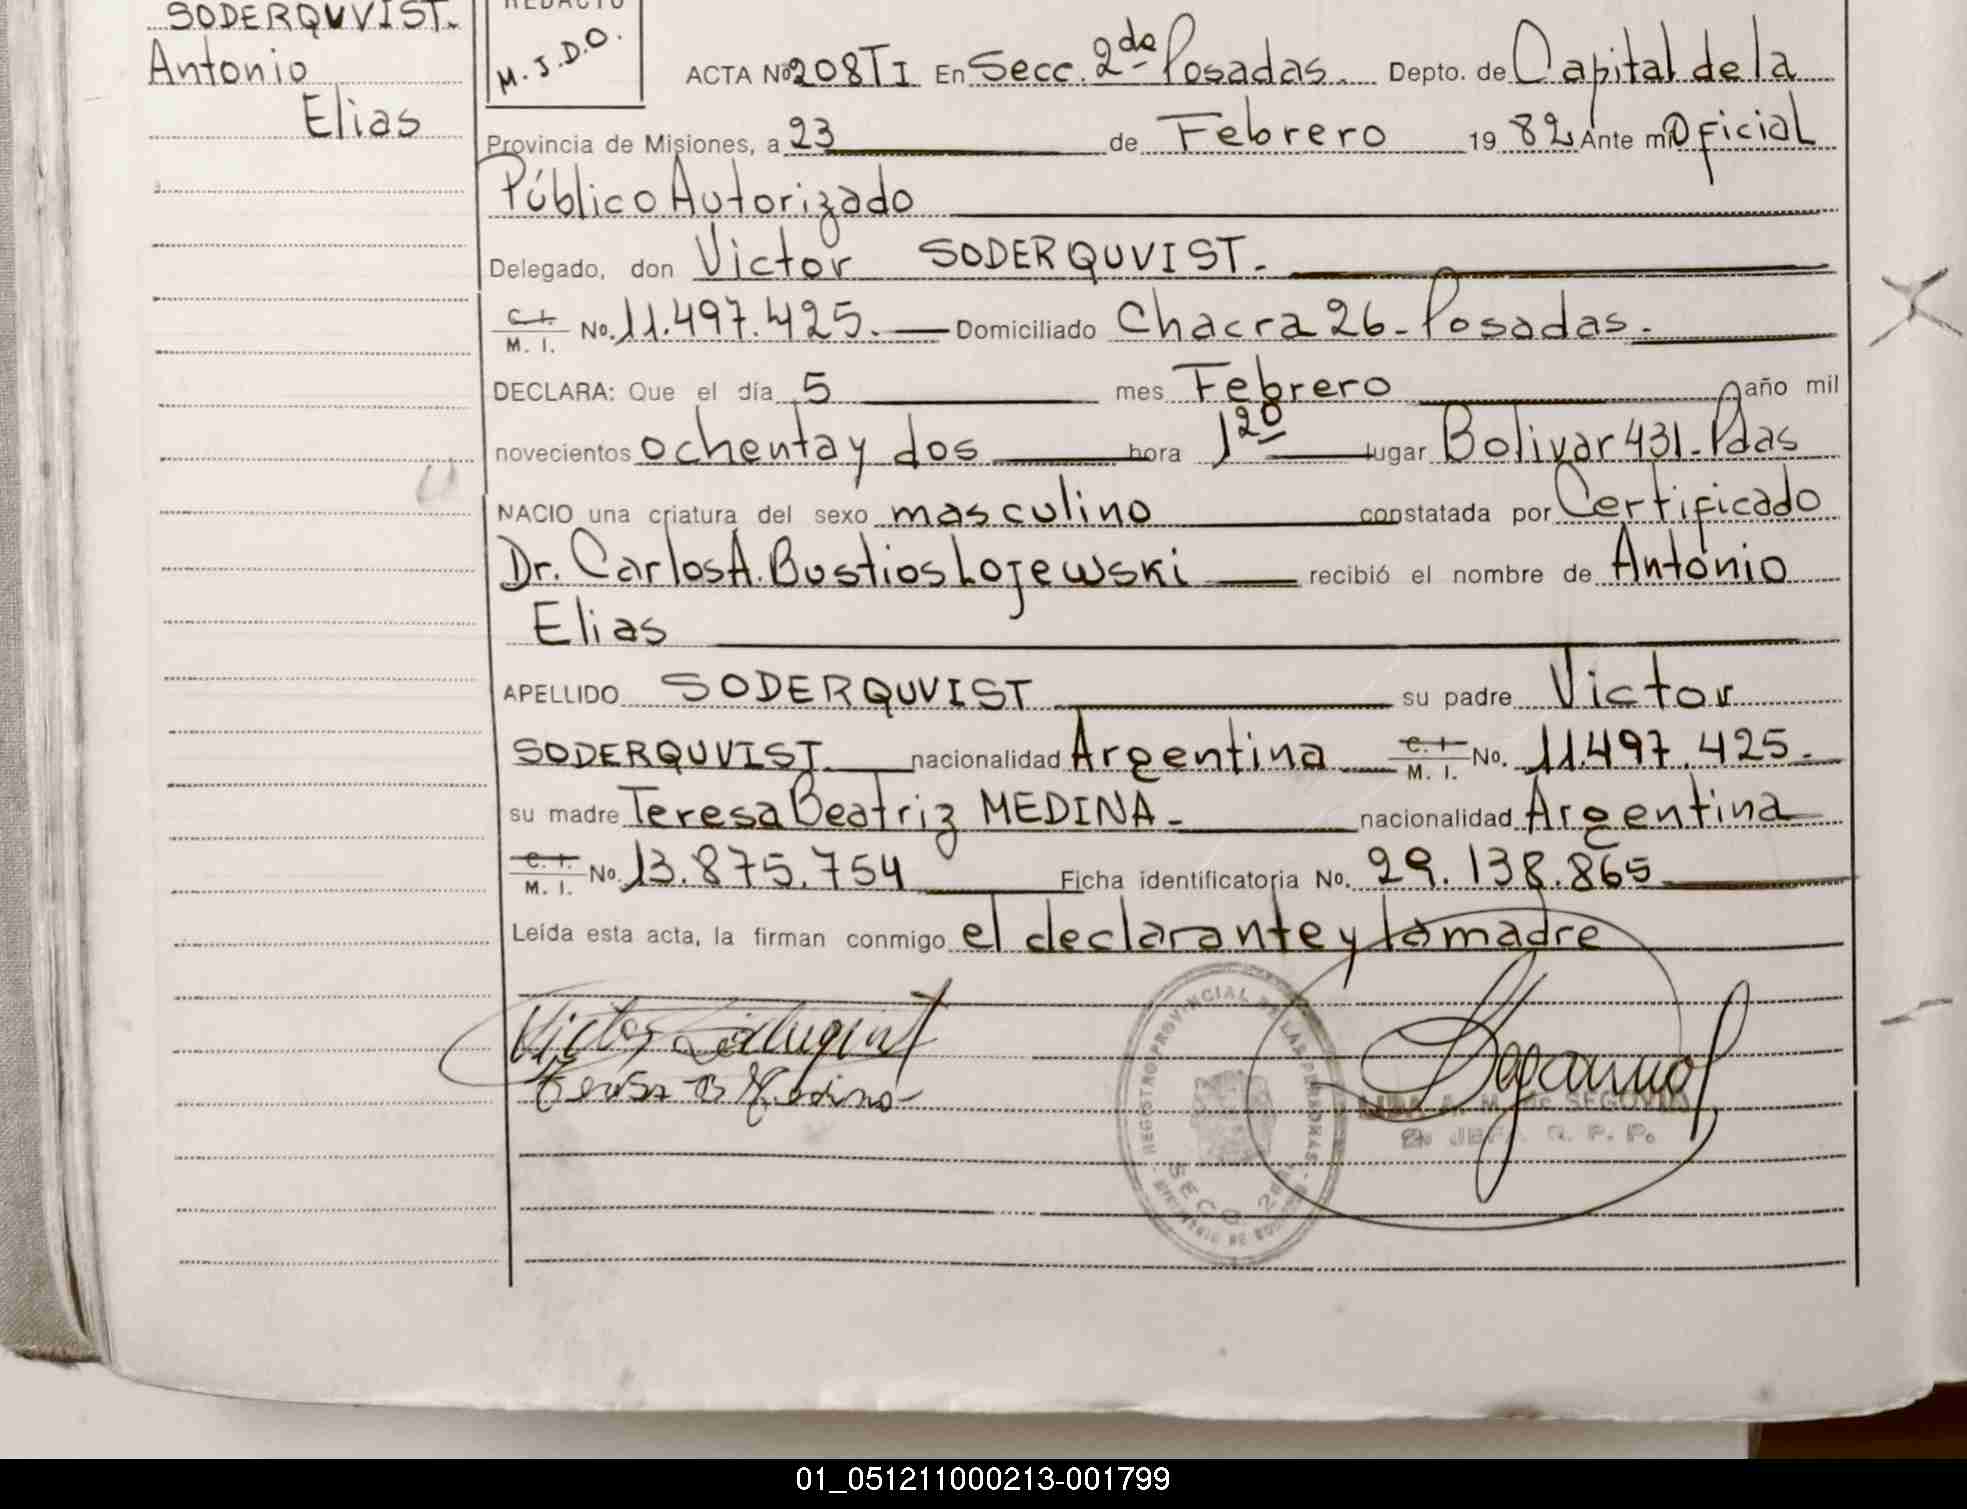 SODERQUVIST.
Antonio
Elias
REDACTO
M.J.D.O.
ACTA Nº 208 TI En Secc. 2da Posadas. Depto. de Capital de la
Provincia de Misiones, a 23 de Febrero 1982 Ante mi Oficial
Público Autorizado
Delegado, don Victor SODERQUVIST.
C. I. / M. I. No. 11.497.425. Domiciliado Chacra 26 - Posadas.
DECLARA: Que el día 5 mes Febrero año mil
novecientos ochenta y dos hora 1 20 lugar Bolivar 431 - Pdas
NACIO una criatura del sexo masculino constatada por Certificado
Dr. Carlos A. Bustios Lojewski recibió el nombre de Antonio
Elias
APELLIDO SODERQUVIST su padre Victor
SODERQUVIST nacionalidad Argentina C. I. / M. I. No. 11.497.425.
su madre Teresa Beatriz MEDINA - nacionalidad Argentina
C. I. / M. I. No. 13.875.754 Ficha identificatoria No. 29.138.865
Leída esta acta, la firman conmigo el declarante y la madre
REGISTRO PROVINCIAL DE LAS PERSONAS
SECC. 2da
A. M. de SEGOVIA
JEFA R. P. P.
01_051211000213-001799